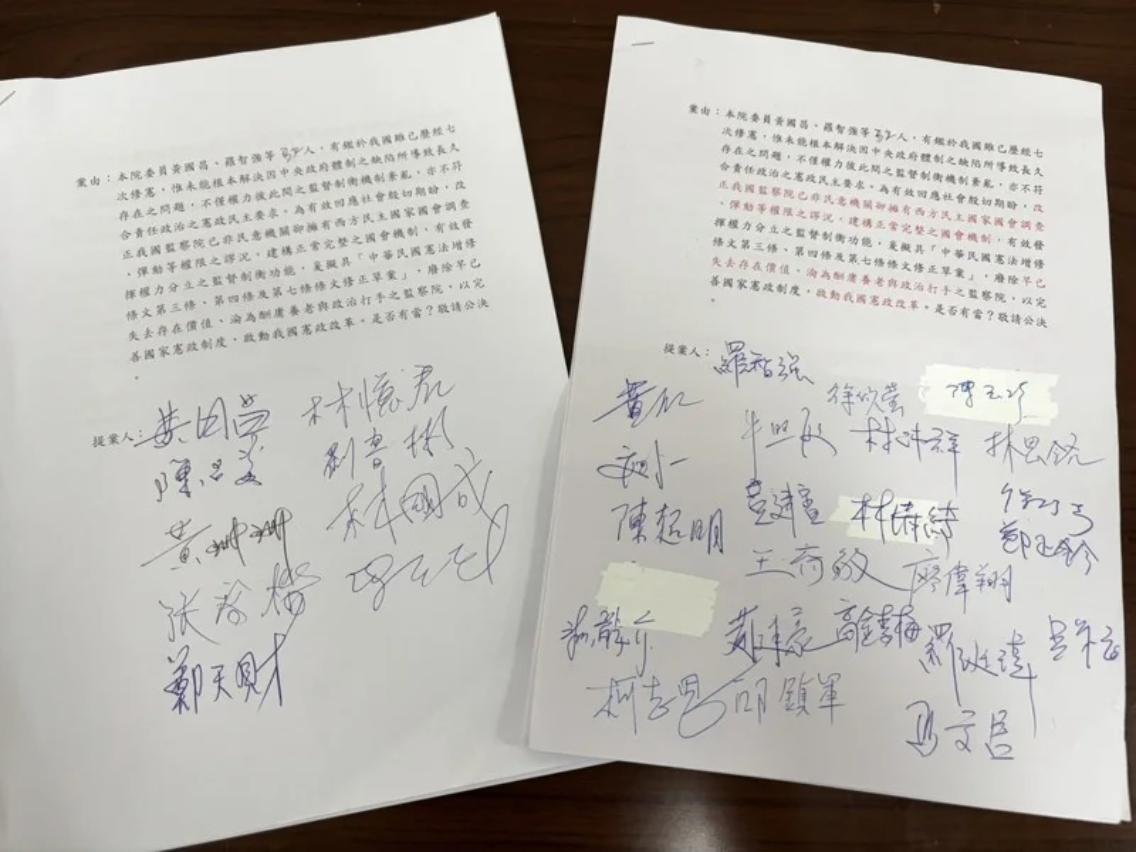 案由：本院委員黃國昌、羅智強等 人，有鑑於我國雖已歷經七
次修憲，惟未能根本解決因中央政府體制之缺陷所導致長久
存在之問題，不僅權力彼此間之監督制衡機制紊亂，亦不符
合責任政治之憲政民主要求。為有效回應社會殷切期盼，改
正我國監察院已非民意機關卻擁有西方民主國家國會調查
、彈劾等權限之謬況，建構正常完整之國會機制，有效發
揮權力分立之監督制衡功能，爰擬具「中華民國憲法增修
條文第三條、第四條及第七條條文修正草案」，廢除早已
失去存在價值、淪為酬庸養老與政治打手之監察院，以完
善國家憲政制度，啟動我國憲政改革。是否有當？敬請公決
。
提案人：黃國昌 林憶君
陳昭姿 劉書彬
黃珊珊 林國成
張啓楷
鄭天財
案由：本院委員黃國昌、羅智強等 人，有鑑於我國雖已歷經七
次修憲，惟未能根本解決因中央政府體制之缺陷所導致長久
存在之問題，不僅權力彼此間之監督制衡機制紊亂，亦不符
合責任政治之憲政民主要求。為有效回應社會殷切期盼，改
正我國監察院已非民意機關卻擁有西方民主國家國會調查
、彈劾等權限之謬況，建構正常完整之國會機制，有效發
揮權力分立之監督制衡功能，爰擬具「中華民國憲法增修
條文第三條、第四條及第七條條文修正草案」，廢除早已
失去存在價值、淪為酬庸養老與政治打手之監察院，以完
善國家憲政制度，啟動我國憲政改革。是否有當？敬請公決
。
提案人：羅智強
黃仁 徐欣瑩 陳玉珍
牛煦庭 林沛祥 林思銘
陳超明 黃建賓 林倩綺
鄭正鈐
王育敏 廖偉翔
游顥 蘇清泉 高金素梅 羅廷瑋
柯志恩 馬文君